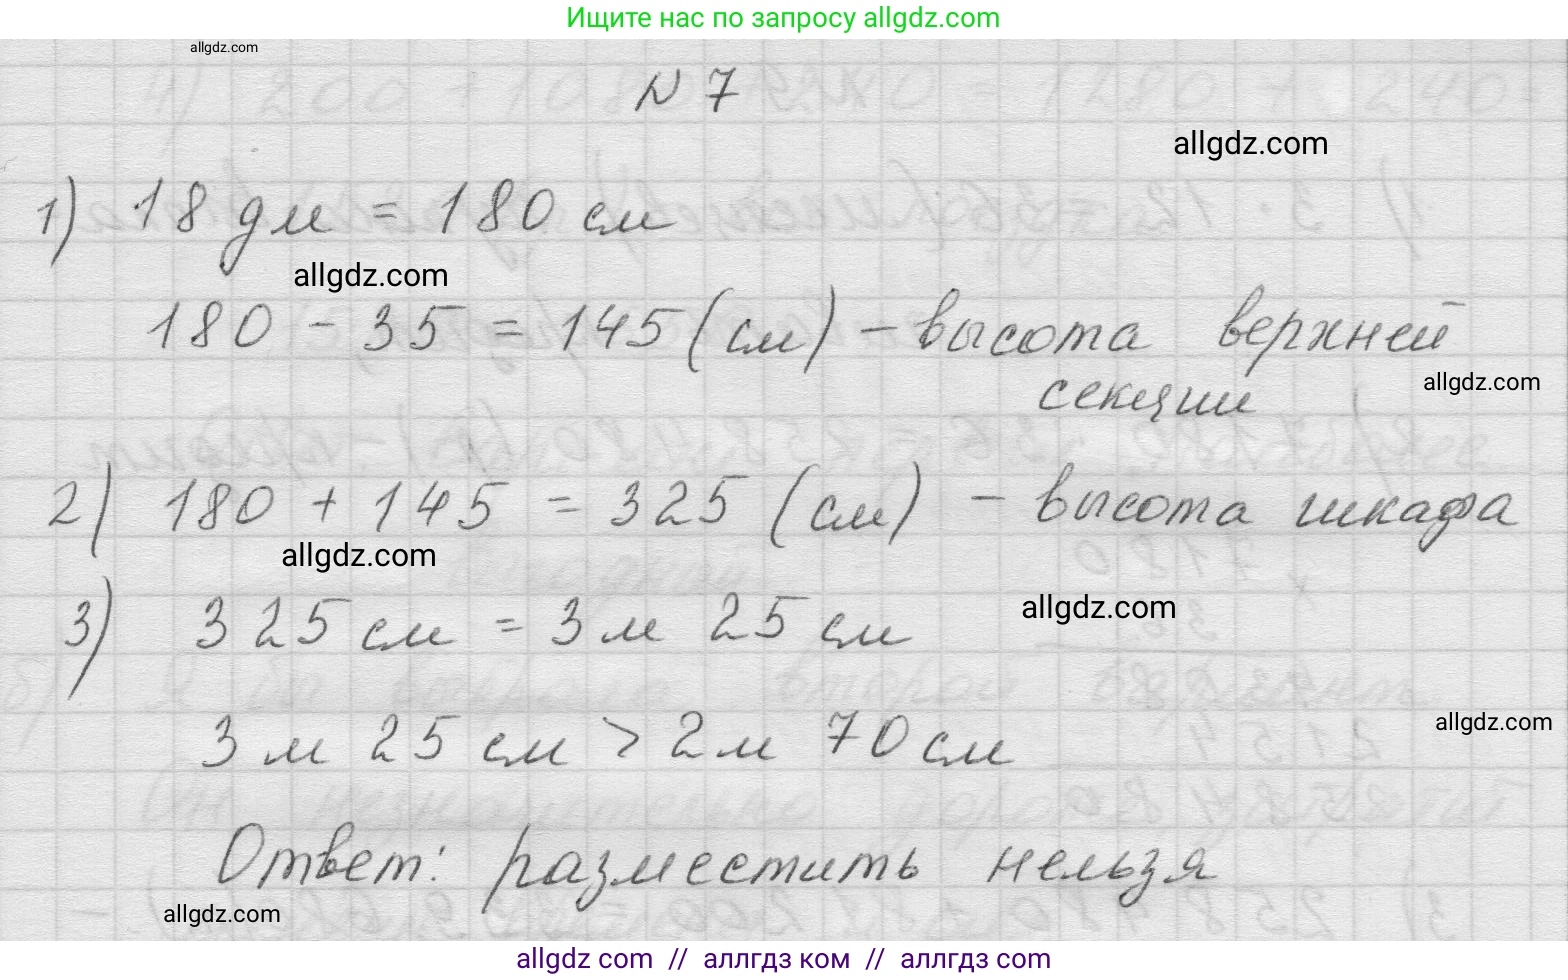 Ищите нас по запросу allgdz.com
allgdz.com
N 7
allgdz.com
1) 18 дм = 180 см
allgdz.com
180 - 35 = 145 (см) - высота верхней
allgdz.com
секции
2) 180 + 145 = 325 (см) - высота шкафа
allgdz.com
allgdz.com
3) 325 см = 3 м 25 см
allgdz.com
3 м 25 см > 2 м 70 см
Ответ: разместить нельзя
allgdz.com
allgdz com // аллгдз ком // аллгдз com